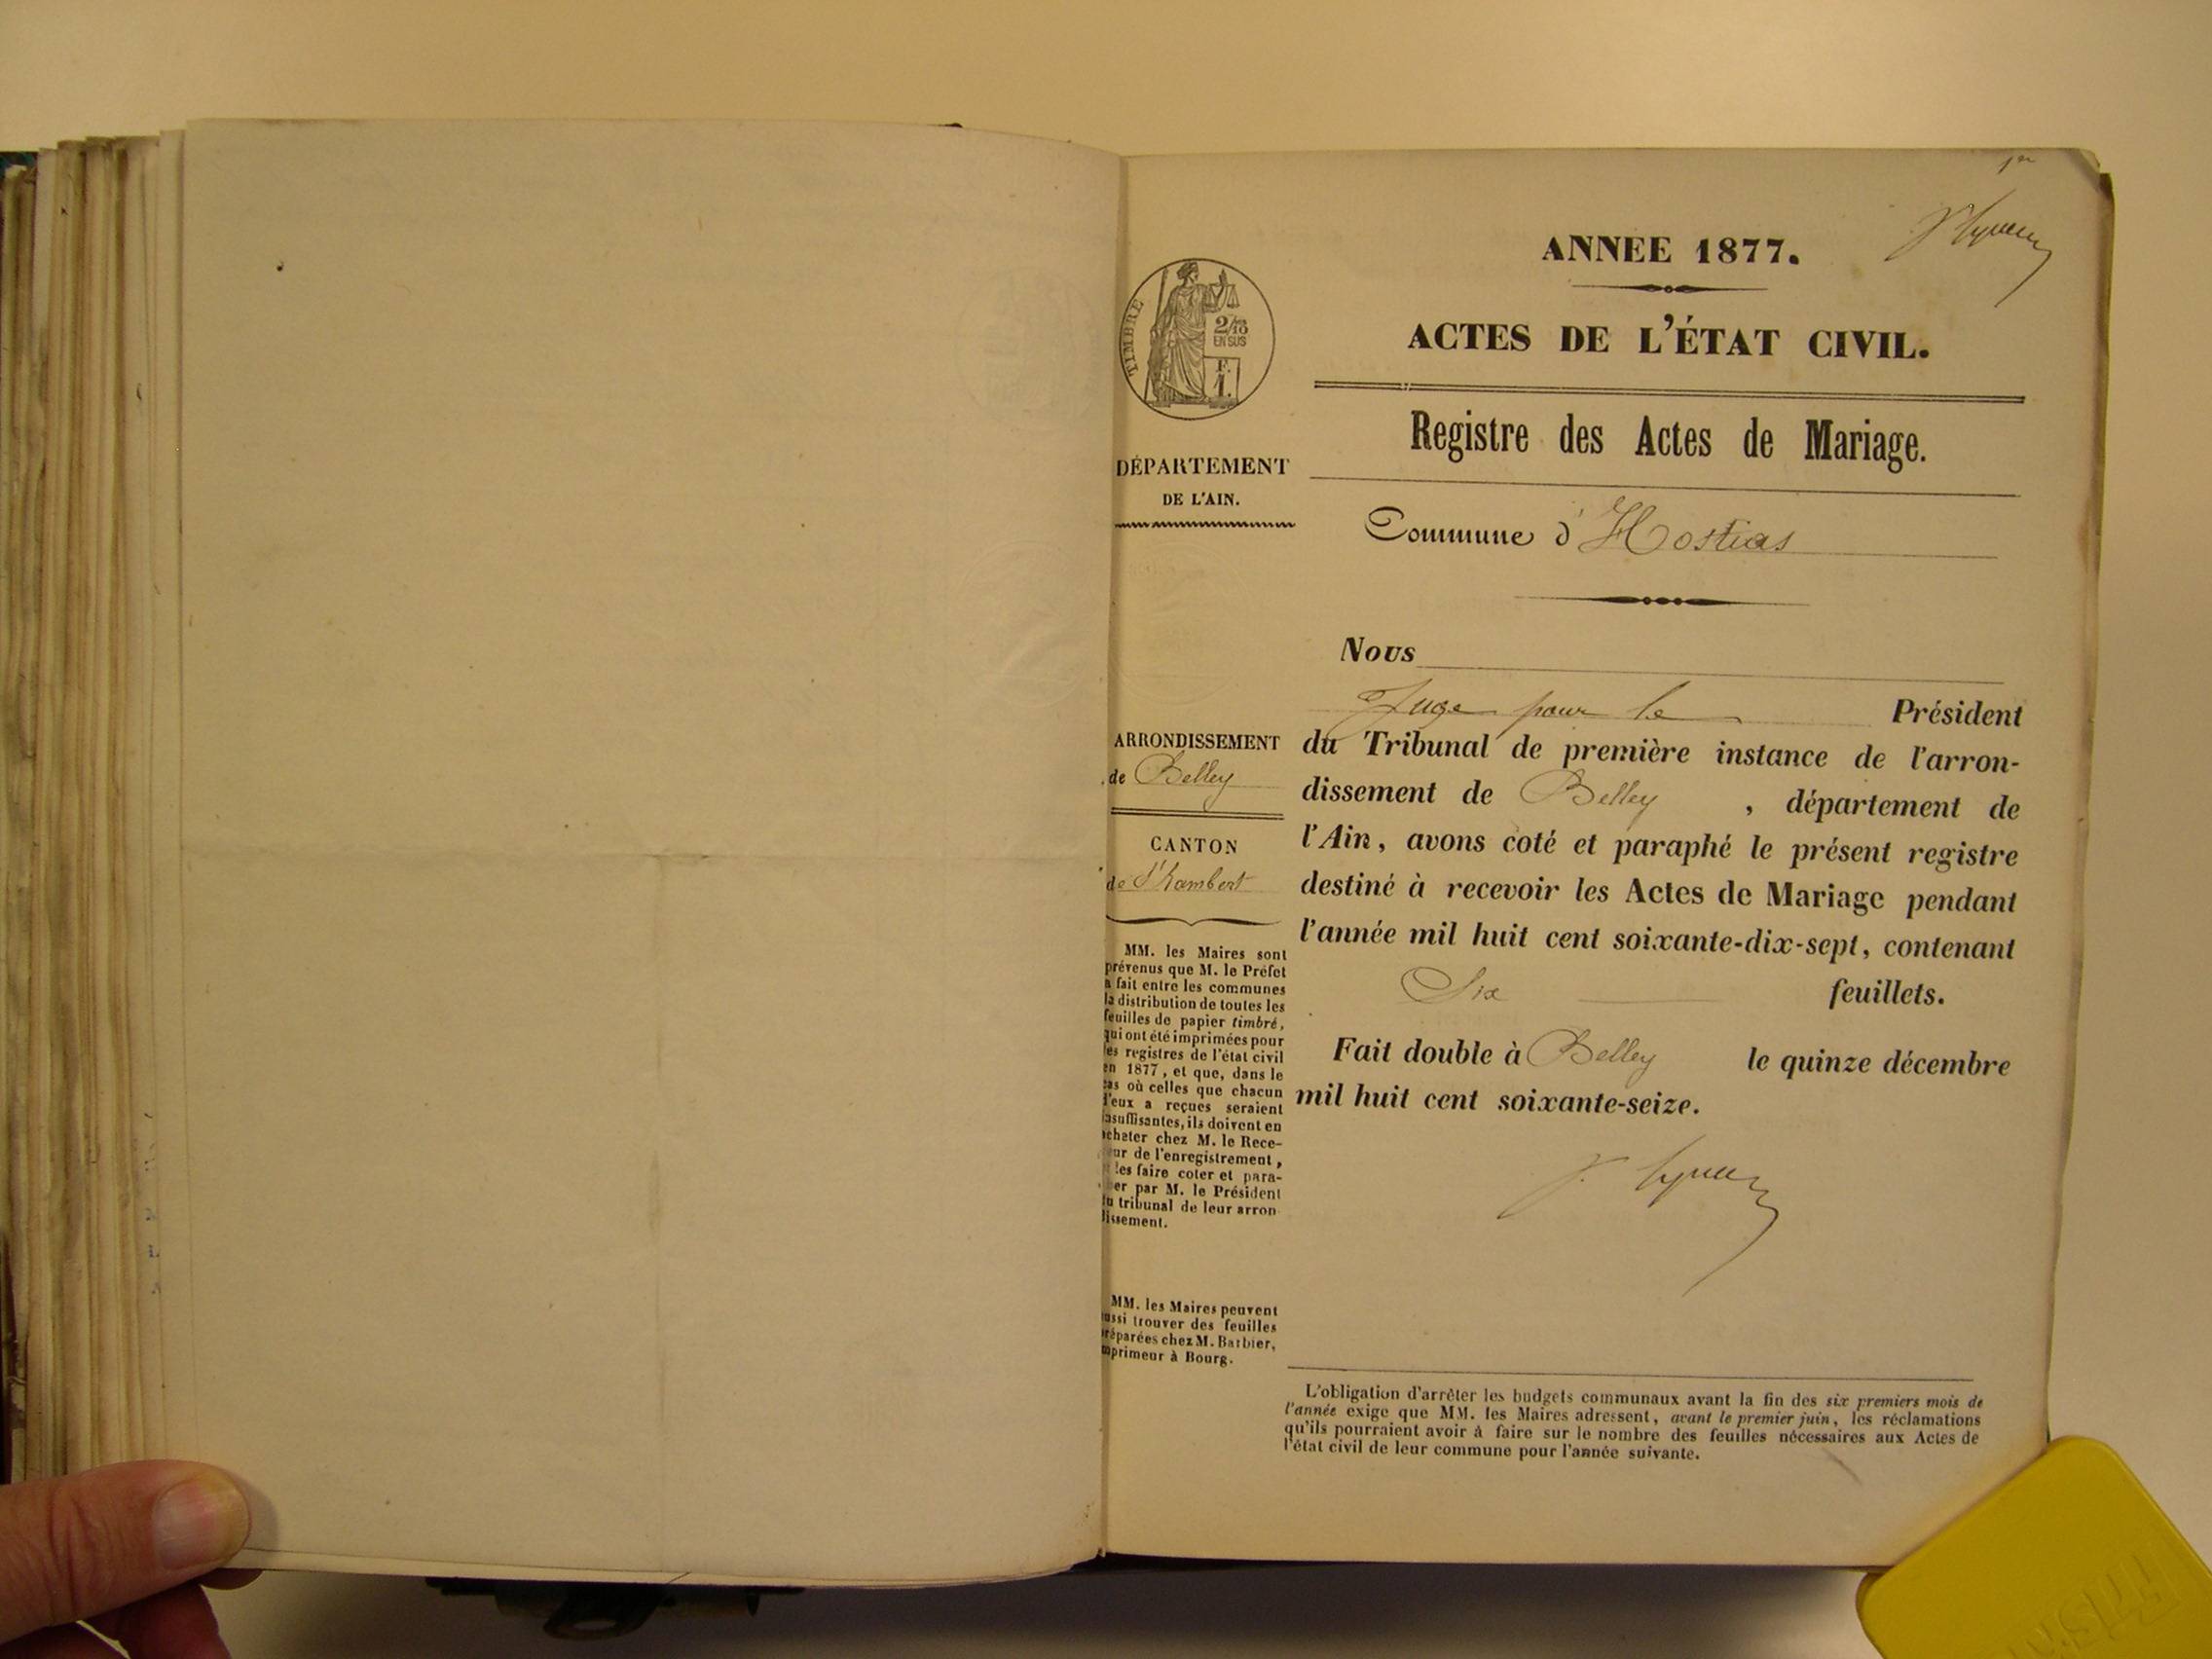 1er
ANNEE 1877.
ACTES DE L'ÉTAT CIVIL.
Registre des Actes de Mariage.
Commune d'Hostias
TIMBRE
2/10
EN SUS
F.
1.
DÉPARTEMENT
DE L'AIN.
ARRONDISSEMENT
de Belley
CANTON
de St Rambert
MM. les Maires sont
prévenus que M. le Préfet
a fait entre les communes
la distribution de toutes les
feuilles de papier timbré,
qui ont été imprimées pour
les registres de l'état civil
en 1877, et que, dans le
cas où celles que chacun
d'eux a reçues seraient
insuffisantes, ils doivent en
acheter chez M. le Rece-
eur de l'enregistrement,
les faire coter et para-
er par M. le Président
du tribunal de leur arron
dissement.
MM. les Maires peuvent
aussi trouver des feuilles
préparées chez M. Barbier,
imprimeur à Bourg.
Nous
Juge pour le Président
du Tribunal de première instance de l'arron-
dissement de Belley , département de
l'Ain, avons coté et paraphé le présent registre
destiné à recevoir les Actes de Mariage pendant
l'année mil huit cent soixante-dix-sept, contenant
Six feuillets.
Fait double à Belley le quinze décembre
mil huit cent soixante-seize.
L'obligation d'arrêter les budgets communaux avant la fin des six premiers mois de
l'année exige que MM. les Maires adressent, avant le premier juin, les réclamations
qu'ils pourraient avoir à faire sur le nombre des feuilles nécessaires aux Actes de
l'état civil de leur commune pour l'année suivante.